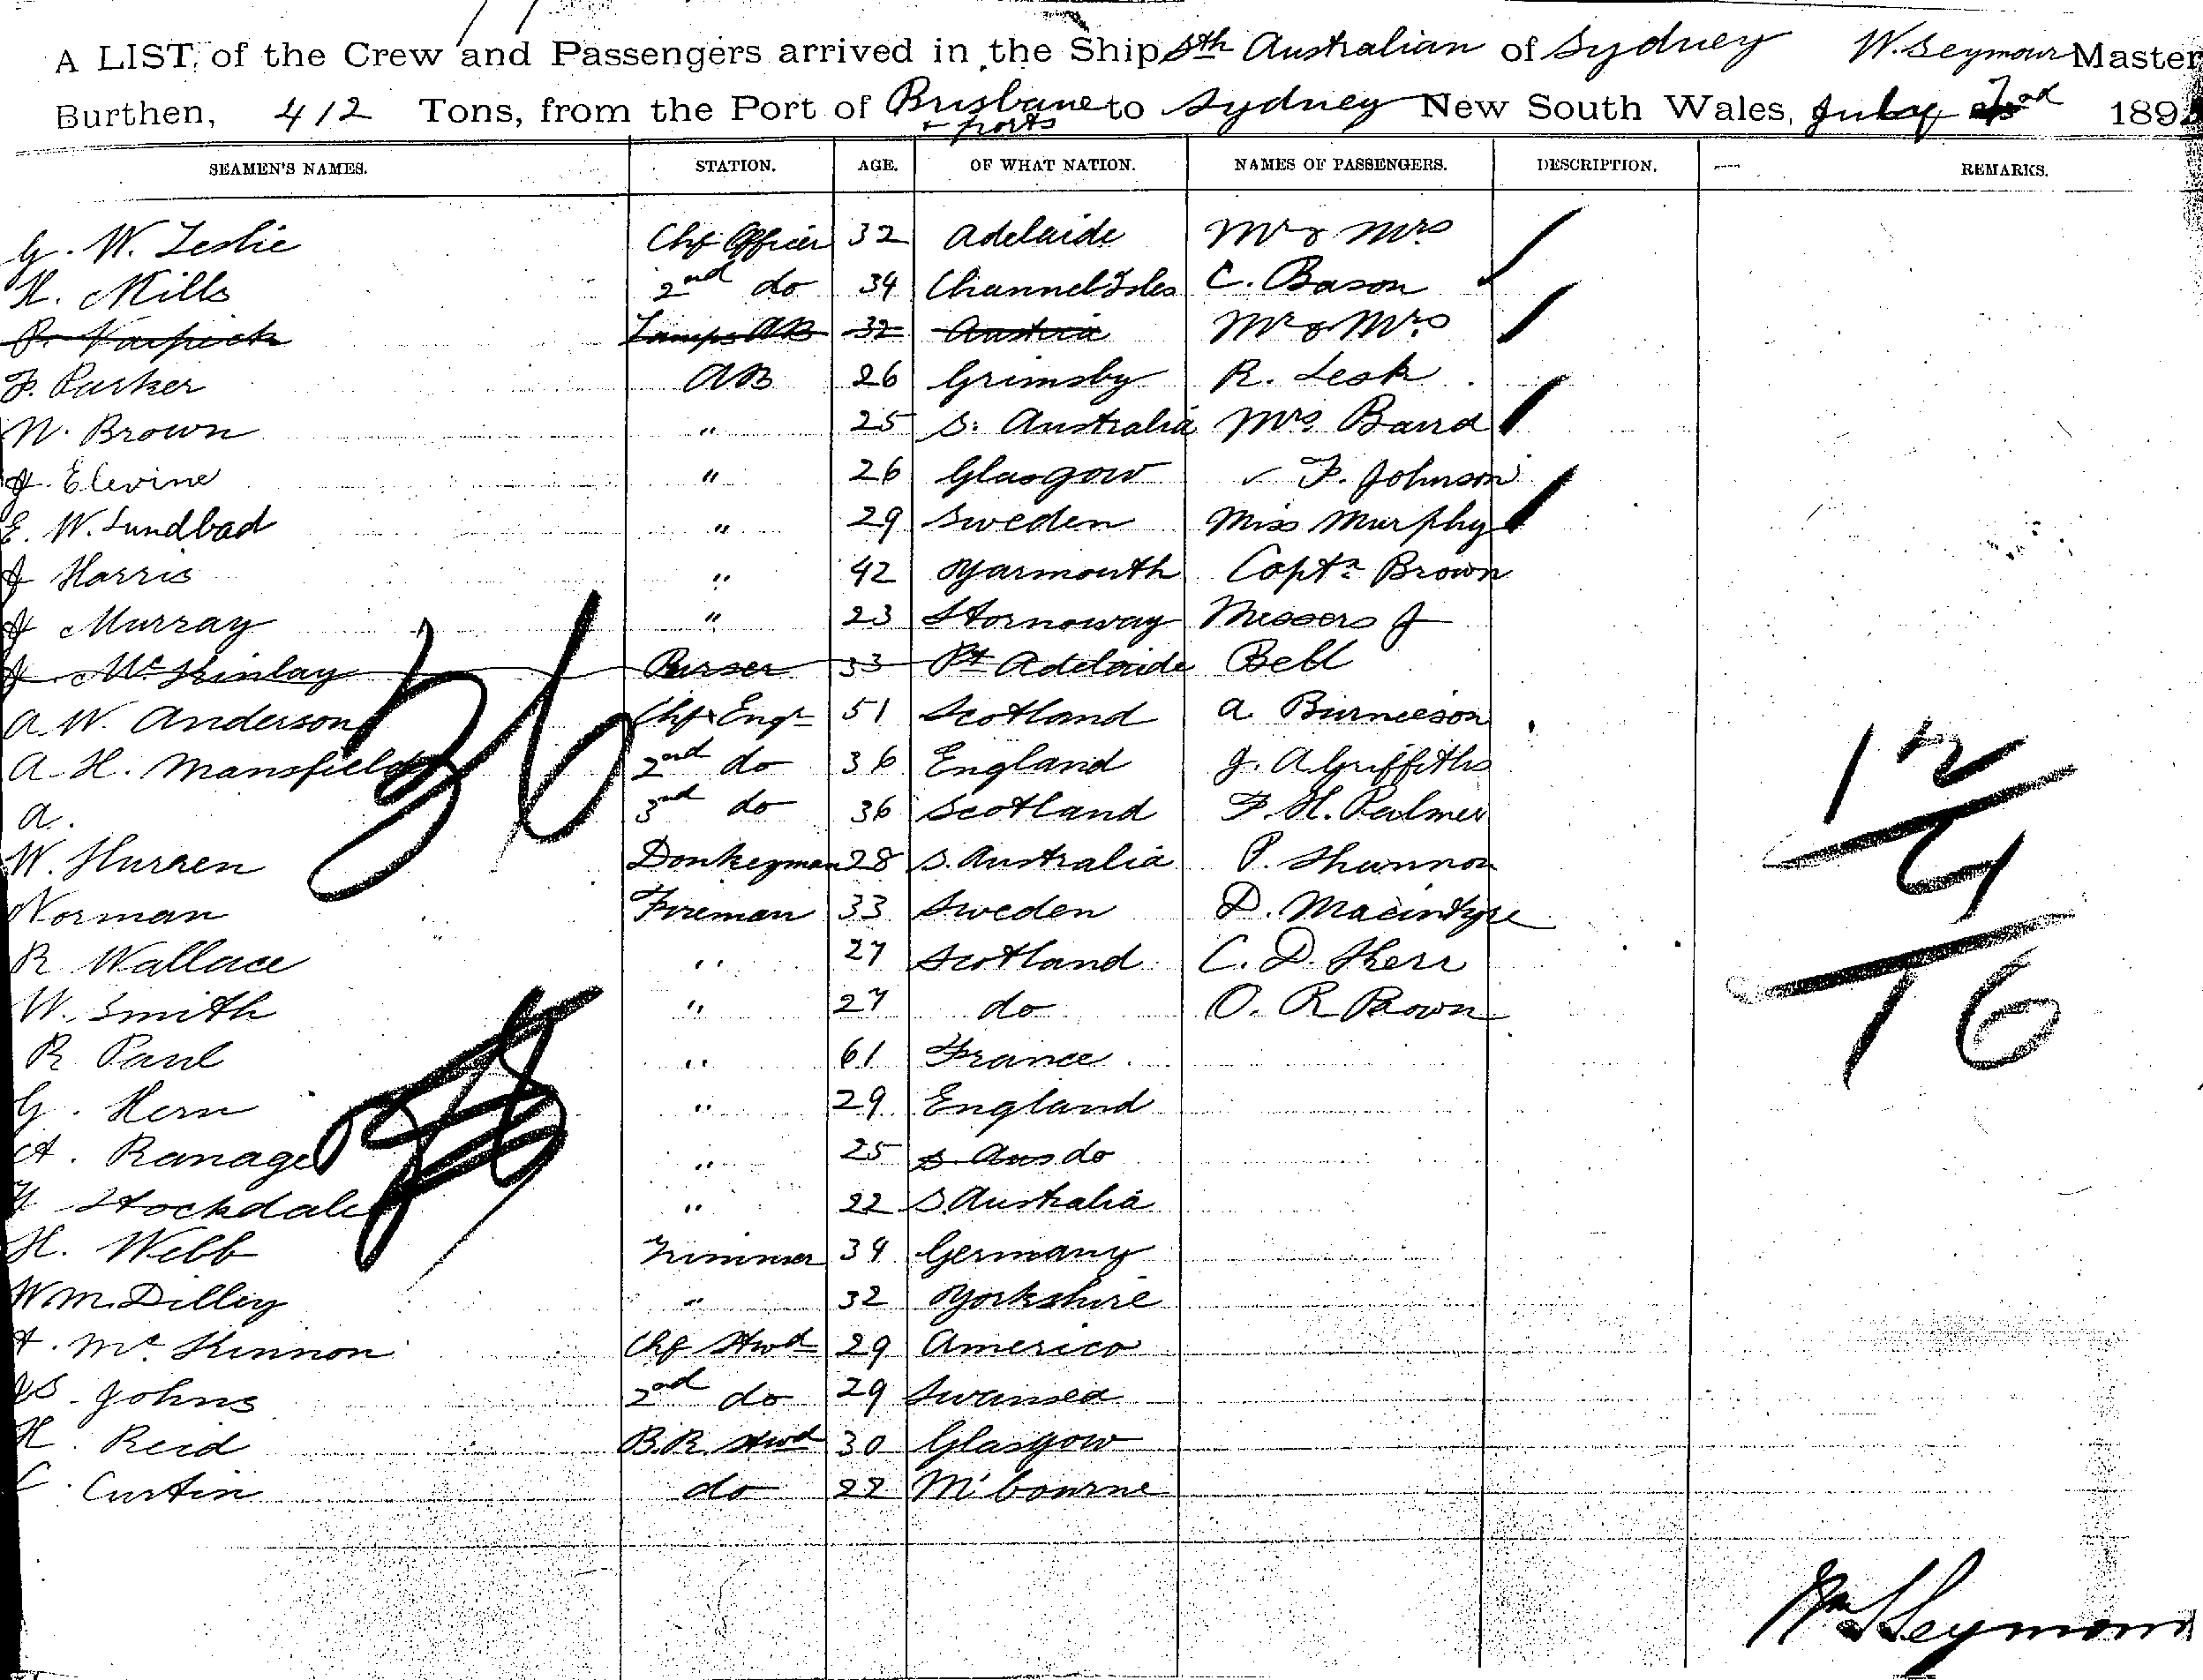 A LIST, of the Crew and Passengers arrived in the Ship Sth Australian of Sydney W. Seymour Master
Burthen, 412 Tons, from the Port of Brisbane to Sydney New South Wales, July 189
& ports
SEAMEN'S NAMES. STATION. AGE. OF WHAT NATION. NAMES OF PASSENGERS. DESCRIPTION. REMARKS.
G. W. Leslie Chf Officer 32 Adelaide Mr & Mrs
H. Mills 2nd do 34 Channel Isles C. Bason
P. Lamps AB 32 Austria Mr & Mrs
F. Parker AB 26 Grimsby R. Lesk
W. Brown " 25 S. Australia Mrs Baird
J. Elevine " 26 Glasgow F. Johnson
E. W. Lundbad " 29 Sweden Miss Murphy
J Harris " 42 Yarmouth Captn Brown
J Murray " 23 Stornoway Messers J
J. McKinlay Purser 33 Pt Adelaide Bell
A. W. Anderson Chf Engr 51 Scotland A
A. H. Mansfield 2nd do 36 England J. A Griffiths
A. 3rd do 36 Scotland F. H. Palmer
W. Hurren Donkeyman 28 S. Australia P. Shannon
Norman Fireman 33 Sweden D. Macintyre
R Wallace " 27 Scotland C. D. Kerr
W. Smith " 27 do O. R Brown
R Paul " 61 France
G. Hern " 29 England
A. Ramage " 25 S. Aus do
Stockdale " 22 S. Australia
H. Webb Trimmer 34 Germany
W. M. Dilley " 32 Yorkshire
A. McKinnon Chf Stwd 29 America
JS. Johns 2nd do 29 Swansea
H. Reid B.R. Stwd 30 Glasgow
C. Curtin do 22 M'bourne
36
12
4
16
Wm Seymour